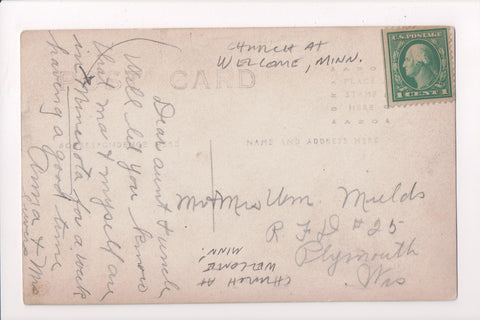 CHURCH AT
WELCOME, MINN.
U.S. POSTAGE
1 CENT 1
CARD
AZO
PLACE
STAMP
HERE
AZO
CORRESPONDENCE HERE
NAME AND ADDRESS HERE
Dear aunt & uncle
Will let you know
that ma & myself are
in Minnesota for a week
having a good time
Anna & Mrs
Mr & Mrs Wm.
R F D #25
Plymouth
Wis
CHURCH AT
WELCOME
MINN.